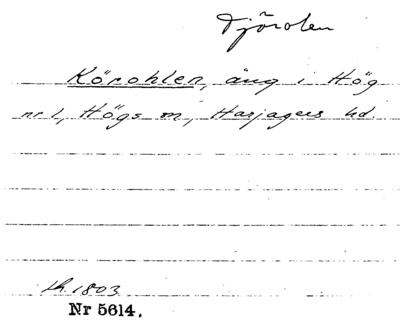 Tjörolen
Körohlen, äng i Hög
nr 1, Högs sn, Harjagers hd.
Lh. 1803
Nr 5614.